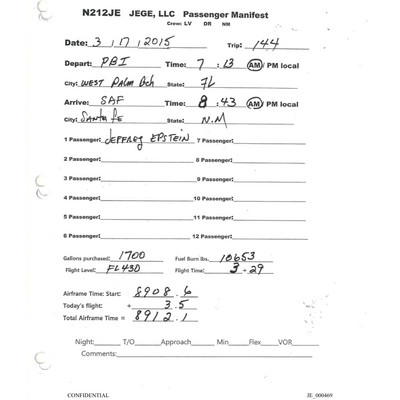 N212JE JEGE, LLC Passenger Manifest
Crew: LV DR NM
Date: 3 / 17 / 2015 Trip: 144
Depart: PBI Time: 7 : 13 AM PM local
City: WEST PALM Bch State: FL
Arrive: SAF Time: 8 : 43 AM PM local
City: SANTA FE State: N.M
1 Passenger: JEFFREY EPSTEIN 7 Passenger:
2 Passenger: 8 Passenger:
3 Passenger: 9 Passenger:
4 Passenger: 10 Passenger:
5 Passenger: 11 Passenger:
6 Passenger: 12 Passenger:
Gallons purchased: 1700 Fuel Burn lbs. 10653
Flight Level: FL430 Flight Time: 3 - 29
Airframe Time: Start: 8908.6
Today's flight: + 3.5
Total Airframe Time = 8912.1
Night: T/O Approach Min Flex VOR
Comments:
CONFIDENTIAL JE_000469